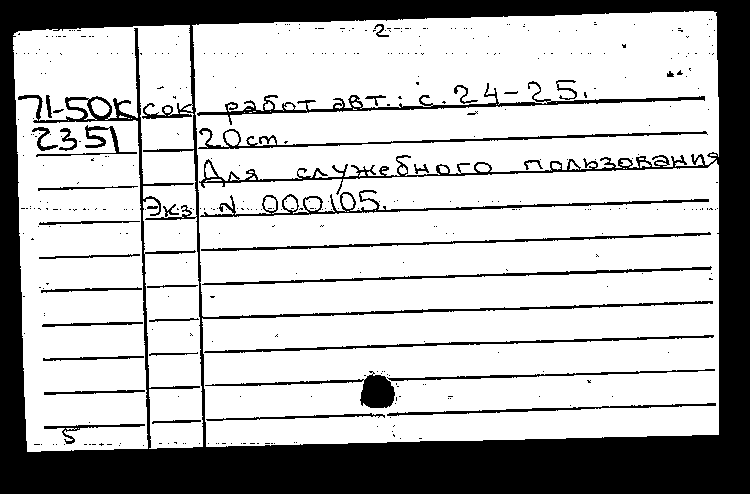 2
71-50К сок работ авт.: с. 24-25.
2351 20 cm.
Для служебного пользования
Экз. N 000105.
5